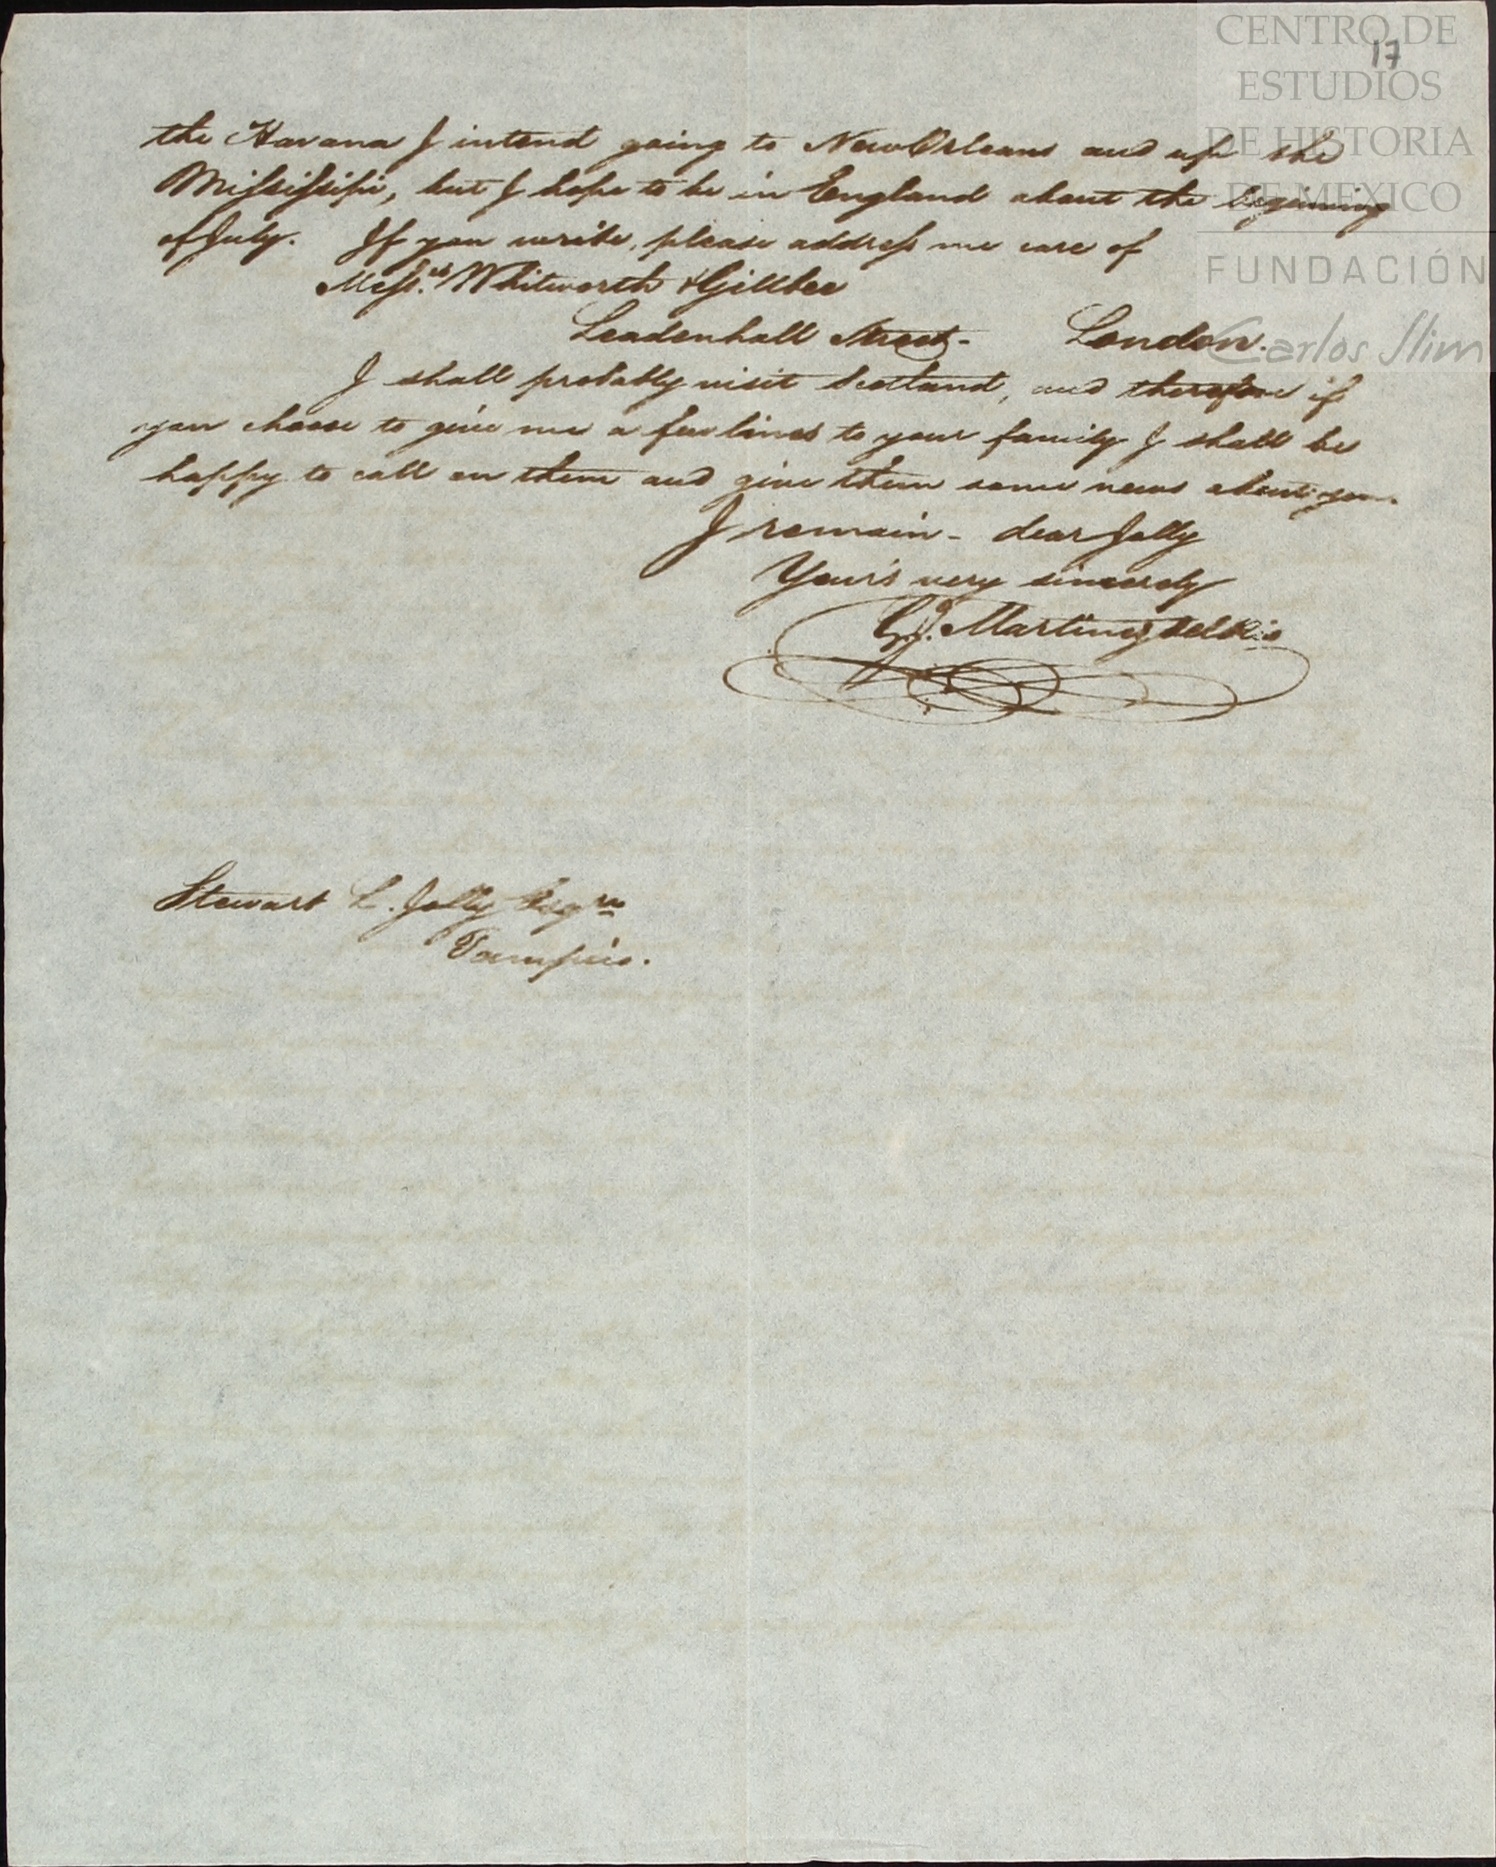 17
CENTRO DE
ESTUDIOS
DE HISTORIA
DE MEXICO
FUNDACIÓN
Carlos Slim
the Havana I intend going to New Orleans and up the
Mississipi, but I hope to be in England about the begining
of July. If you write, please address me care of
Mess.rs Whitworth & Gillbee
Leadenhall Street - London.
I shall probably visit Scotland, and therefore if
you choose to give me a few lines to your family I shall be
happy to call on them and give them some news about you.
I remain - dear Jolly
Your's very sincerely
G. J. Martinez del Rio
Stewart L. Jolly Esqre
Tampico.